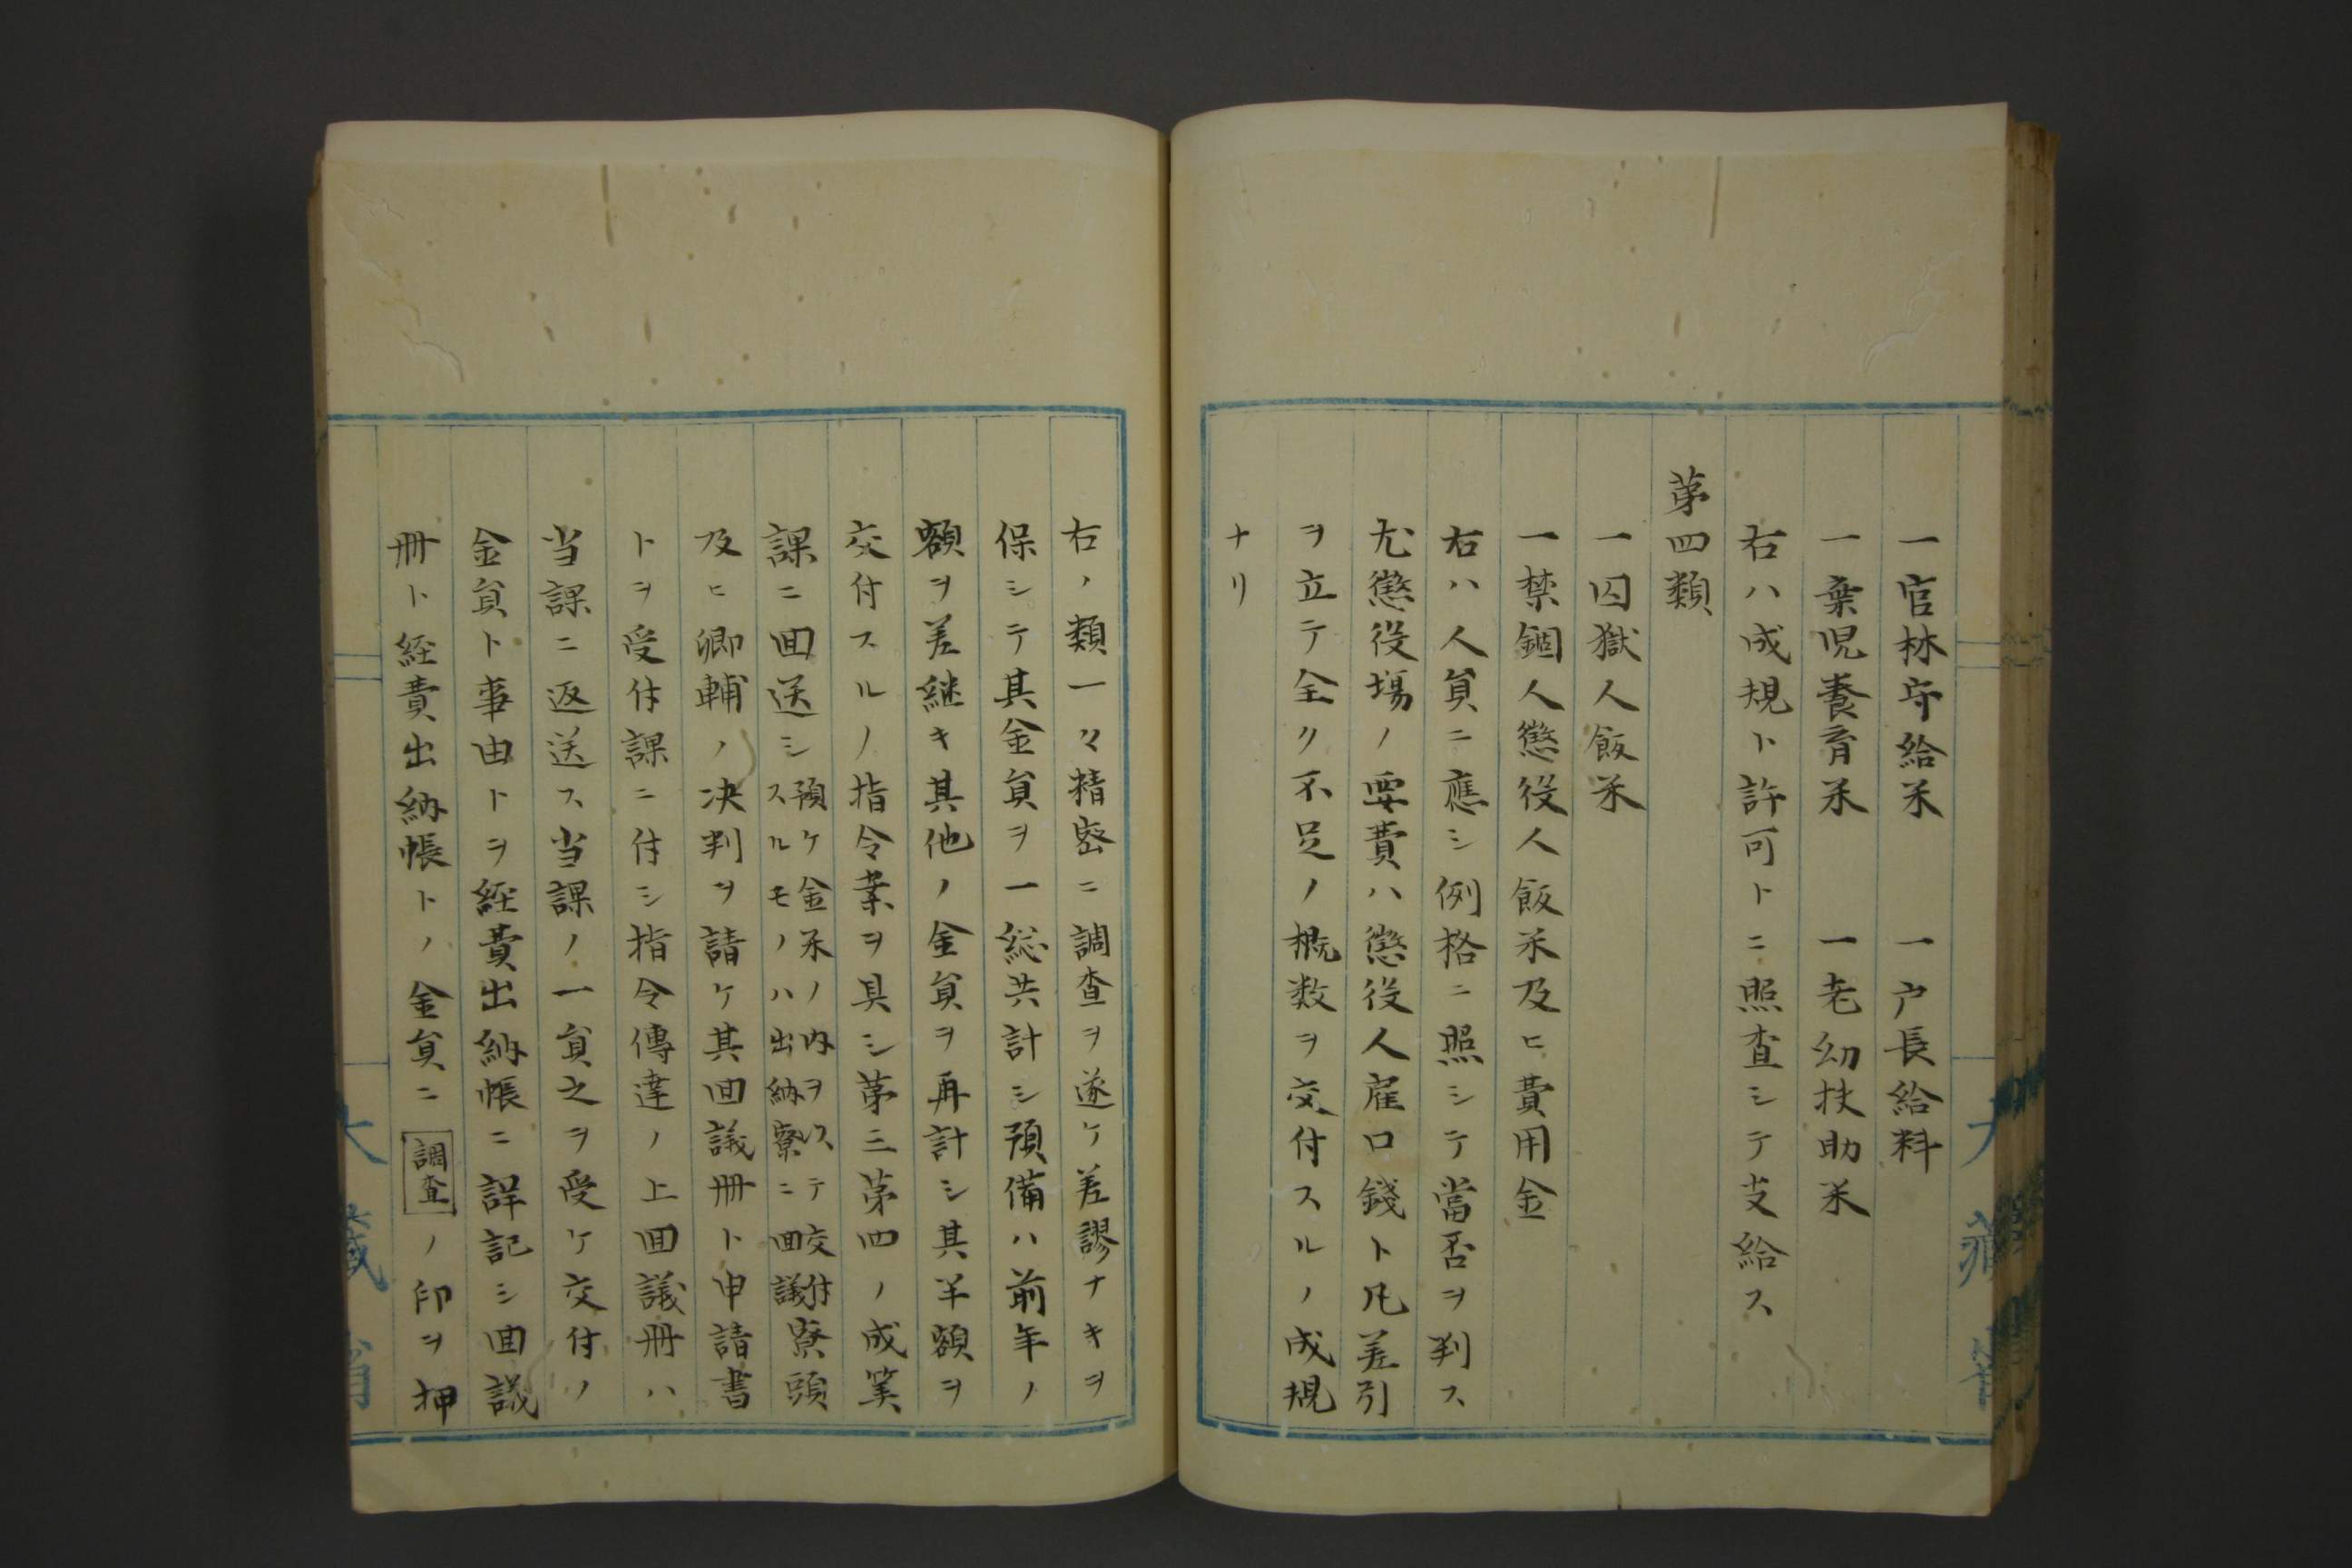 一官林守給米　一戸長給料
一棄児養育米　一老幼扶助米
右ハ成規ト許可トニ照査シテ支給ス
第四類
一囚獄人飯米
一禁錮人懲役人飯米及ヒ費用金
右ハ人員ニ應シ例格ニ照シテ當否ヲ判ス
尤懲役場ノ要費ハ懲役人雇口錢ト凡差引
ヲ立テ全ク不足ノ概数ヲ交付スルノ成規
ナリ
右ノ類一々精密ニ調査ヲ遂ケ差謬ナキヲ
保シテ其金員ヲ一総共計シ預備ハ前年ノ
額ヲ差継キ其他ノ金員ヲ再計シ其半額ヲ
交付スルノ指令案ヲ具シ第三第四ノ成業
課ニ回送シ預ケ金米ノ内ヲ以テ交付スルモノハ出納寮ニ回議寮頭
及ヒ卿輔ノ决判ヲ請ケ其回議冊ト申請書
トヲ受付課ニ付シ指令傳達ノ上回議冊ハ
当課ニ返送ス当課ノ一員之ヲ受ケ交付ノ
金員ト事由トヲ経費出納帳ニ詳記シ回議
冊ト経費出納帳トノ金員ニ調査ノ印ヲ押
大蔵省